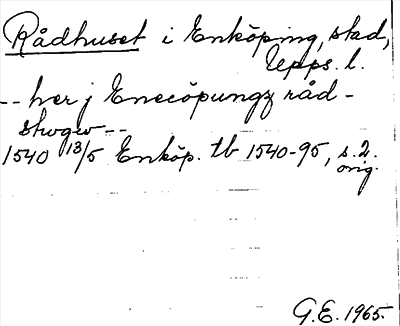 Rådhuset i Enköping, stad,
Upps. l.
-- her j Enecöpungz råd-
stwgw --
1540 13/5 Enköp. tb 1540-95, s. 2.
orig.
G.E. 1965.